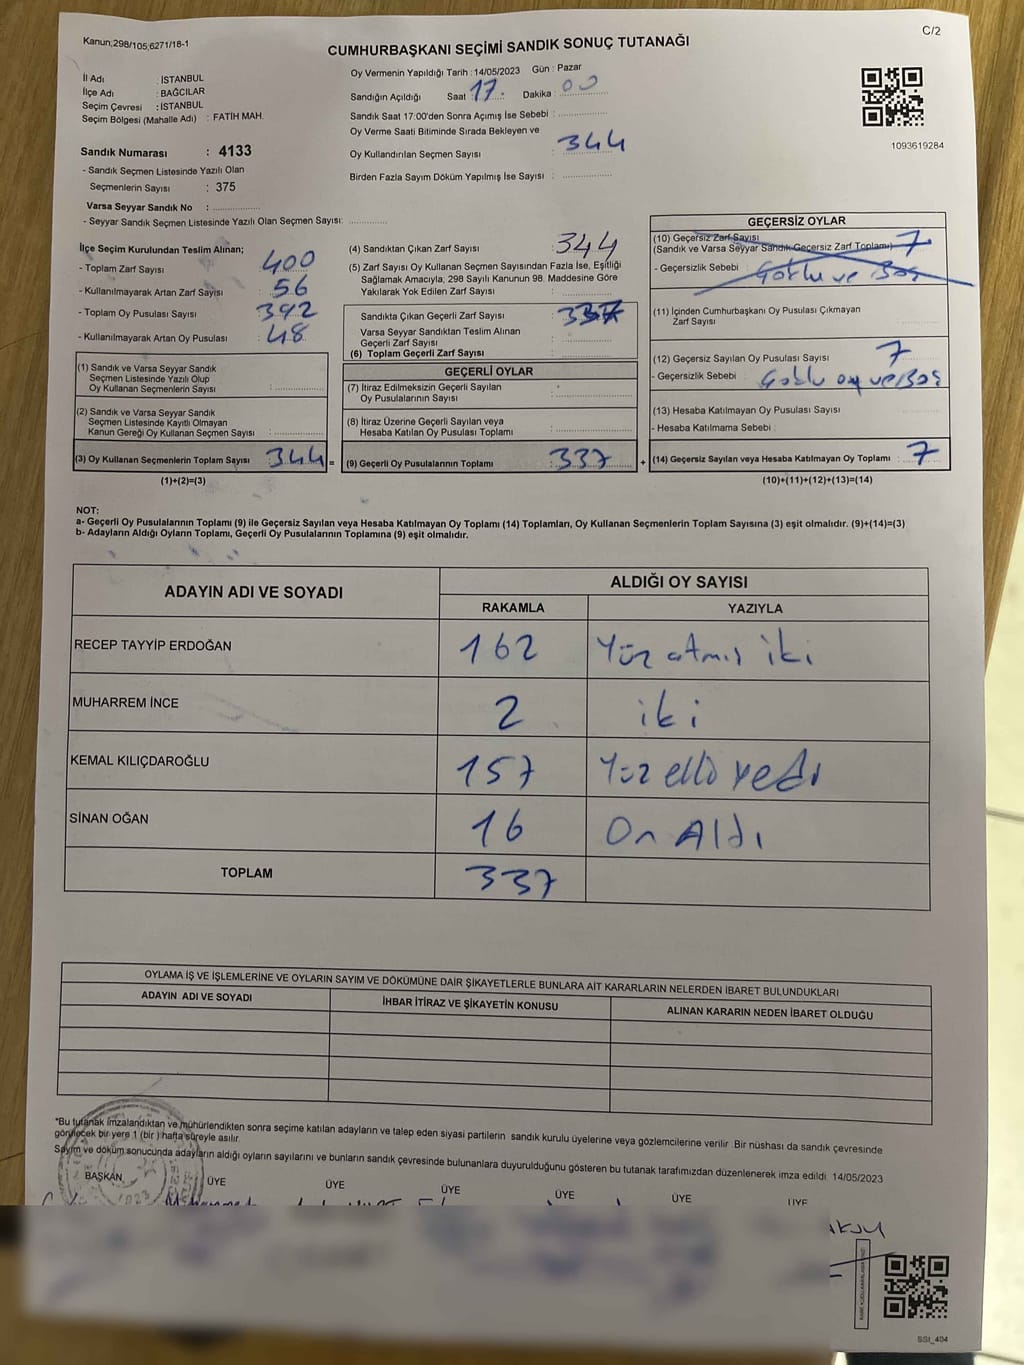 Kanun;298/105;6271/16-1
C/2
CUMHURBAŞKANI SEÇİMİ SANDIK SONUÇ TUTANAĞI
İl Adı : İSTANBUL
İlçe Adı : BAĞCILAR
Seçim Çevresi : İSTANBUL
Seçim Bölgesi (Mahalle Adı) : FATİH MAH.
Sandık Numarası : 4133
- Sandık Seçmen Listesinde Yazılı Olan
Seçmenlerin Sayısı : 375
Varsa Seyyar Sandık No :
- Seyyar Sandık Seçmen Listesinde Yazılı Olan Seçmen Sayısı:
Oy Vermenin Yapıldığı Tarih : 14/05/2023 Gün : Pazar
Sandığın Açıldığı Saat 17: Dakika : 00
Sandık Saat 17:00'den Sonra Açımış İse Sebebi :
Oy Verme Saati Bitiminde Sırada Bekleyen ve
Oy Kullandırılan Seçmen Sayısı : 344
Birden Fazla Sayım Döküm Yapılmış İse Sayısı :
1093619284
İlçe Seçim Kurulundan Teslim Alınan;
- Toplam Zarf Sayısı : 400
- Kullanılmayarak Artan Zarf Sayısı : 56
- Toplam Oy Pusulası Sayısı : 392
- Kullanılmayarak Artan Oy Pusulası : 48
(1) Sandık ve Varsa Seyyar Sandık
Seçmen Listesinde Yazılı Olup
Oy Kullanan Seçmenlerin Sayısı :
(2) Sandık ve Varsa Seyyar Sandık
Seçmen Listesinde Kayıtlı Olmayan
Kanun Gereği Oy Kullanan Seçmen Sayısı :
(3) Oy Kullanan Seçmenlerin Toplam Sayısı : 344 =
(1)+(2)=(3)
(4) Sandıktan Çıkan Zarf Sayısı : 344
(5) Zarf Sayısı Oy Kullanan Seçmen Sayısından Fazla İse, Eşitliği
Sağlamak Amacıyla; 298 Sayılı Kanunun 98. Maddesine Göre
Yakılarak Yok Edilen Zarf Sayısı :
Sandıkta Çıkan Geçerli Zarf Sayısı : 337
Varsa Seyyar Sandıktan Teslim Alınan
Geçerli Zarf Sayısı :
(6) Toplam Geçerli Zarf Sayısı :
GEÇERLİ OYLAR
(7) İtiraz Edilmeksizin Geçerli Sayılan
Oy Pusulalarının Sayısı :
(8) İtiraz Üzerine Geçerli Sayılan ve
Hesaba Katılan Oy Pusulası Toplamı :
(9) Geçerli Oy Pusulalarının Toplamı : 337 +
GEÇERSİZ OYLAR
(10) Geçersiz Zarf Sayısı
(Sandık ve Varsa Seyyar Sandık Geçersiz Zarf Toplamı) 7
- Geçersizlik Sebebi : Çoklu ve Boş
(11) İçinden Cumhurbaşkanı Oy Pusulası Çıkmayan
Zarf Sayısı
(12) Geçersiz Sayılan Oy Pusulası Sayısı : 7
- Geçersizlik Sebebi : Çoklu oy ve Boş
(13) Hesaba Katılmayan Oy Pusulası Sayısı :
- Hesaba Katılmama Sebebi :
(14) Geçersiz Sayılan veya Hesaba Katılmayan Oy Toplamı : 7
(10)+(11)+(12)+(13)=(14)
NOT:
a- Geçerli Oy Pusulalarının Toplamı (9) ile Geçersiz Sayılan veya Hesaba Katılmayan Oy Toplamı (14) Toplamları, Oy Kullanan Seçmenlerin Toplam Sayısına (3) eşit olmalıdır. (9)+(14)=(3)
b- Adayların Aldığı Oyların Toplamı, Geçerli Oy Pusulalarının Toplamına (9) eşit olmalıdır.
ADAYIN ADI VE SOYADI
ALDIĞI OY SAYISI
RAKAMLA YAZIYLA
RECEP TAYYİP ERDOĞAN 162 Yüz atmış iki
MUHARREM İNCE 2 iki
KEMAL KILIÇDAROĞLU 157 Yüz elli Yedi
SİNAN OĞAN 16 On Aldı
TOPLAM 337
OYLAMA İŞ VE İŞLEMLERİNE VE OYLARIN SAYIM VE DÖKÜMÜNE DAİR ŞİKAYETLERLE BUNLARA AİT KARARLARIN NELERDEN İBARET BULUNDUKLARI
ADAYIN ADI VE SOYADI İHBAR İTİRAZ VE ŞİKAYETİN KONUSU ALINAN KARARIN NEDEN İBARET OLDUĞU
*Bu tutanak imzalandıktan ve mühürlendikten sonra seçime katılan adayların ve talep eden siyasi partilerin sandık kurulu üyelerine veya gözlemcilerine verilir. Bir nüshası da sandık çevresinde
görülecek bir yere 1 (bir ) hafta süreyle asılır.
Sayım ve döküm sonucunda adayların aldığı oyların sayılarını ve bunların sandık çevresinde bulunanlara duyurulduğunu gösteren bu tutanak tarafımızdan düzenlenerek imza edildi. 14/05/2023
BAŞKAN ÜYE ÜYE ÜYE ÜYE ÜYE ÜYE
1923
SSt_404